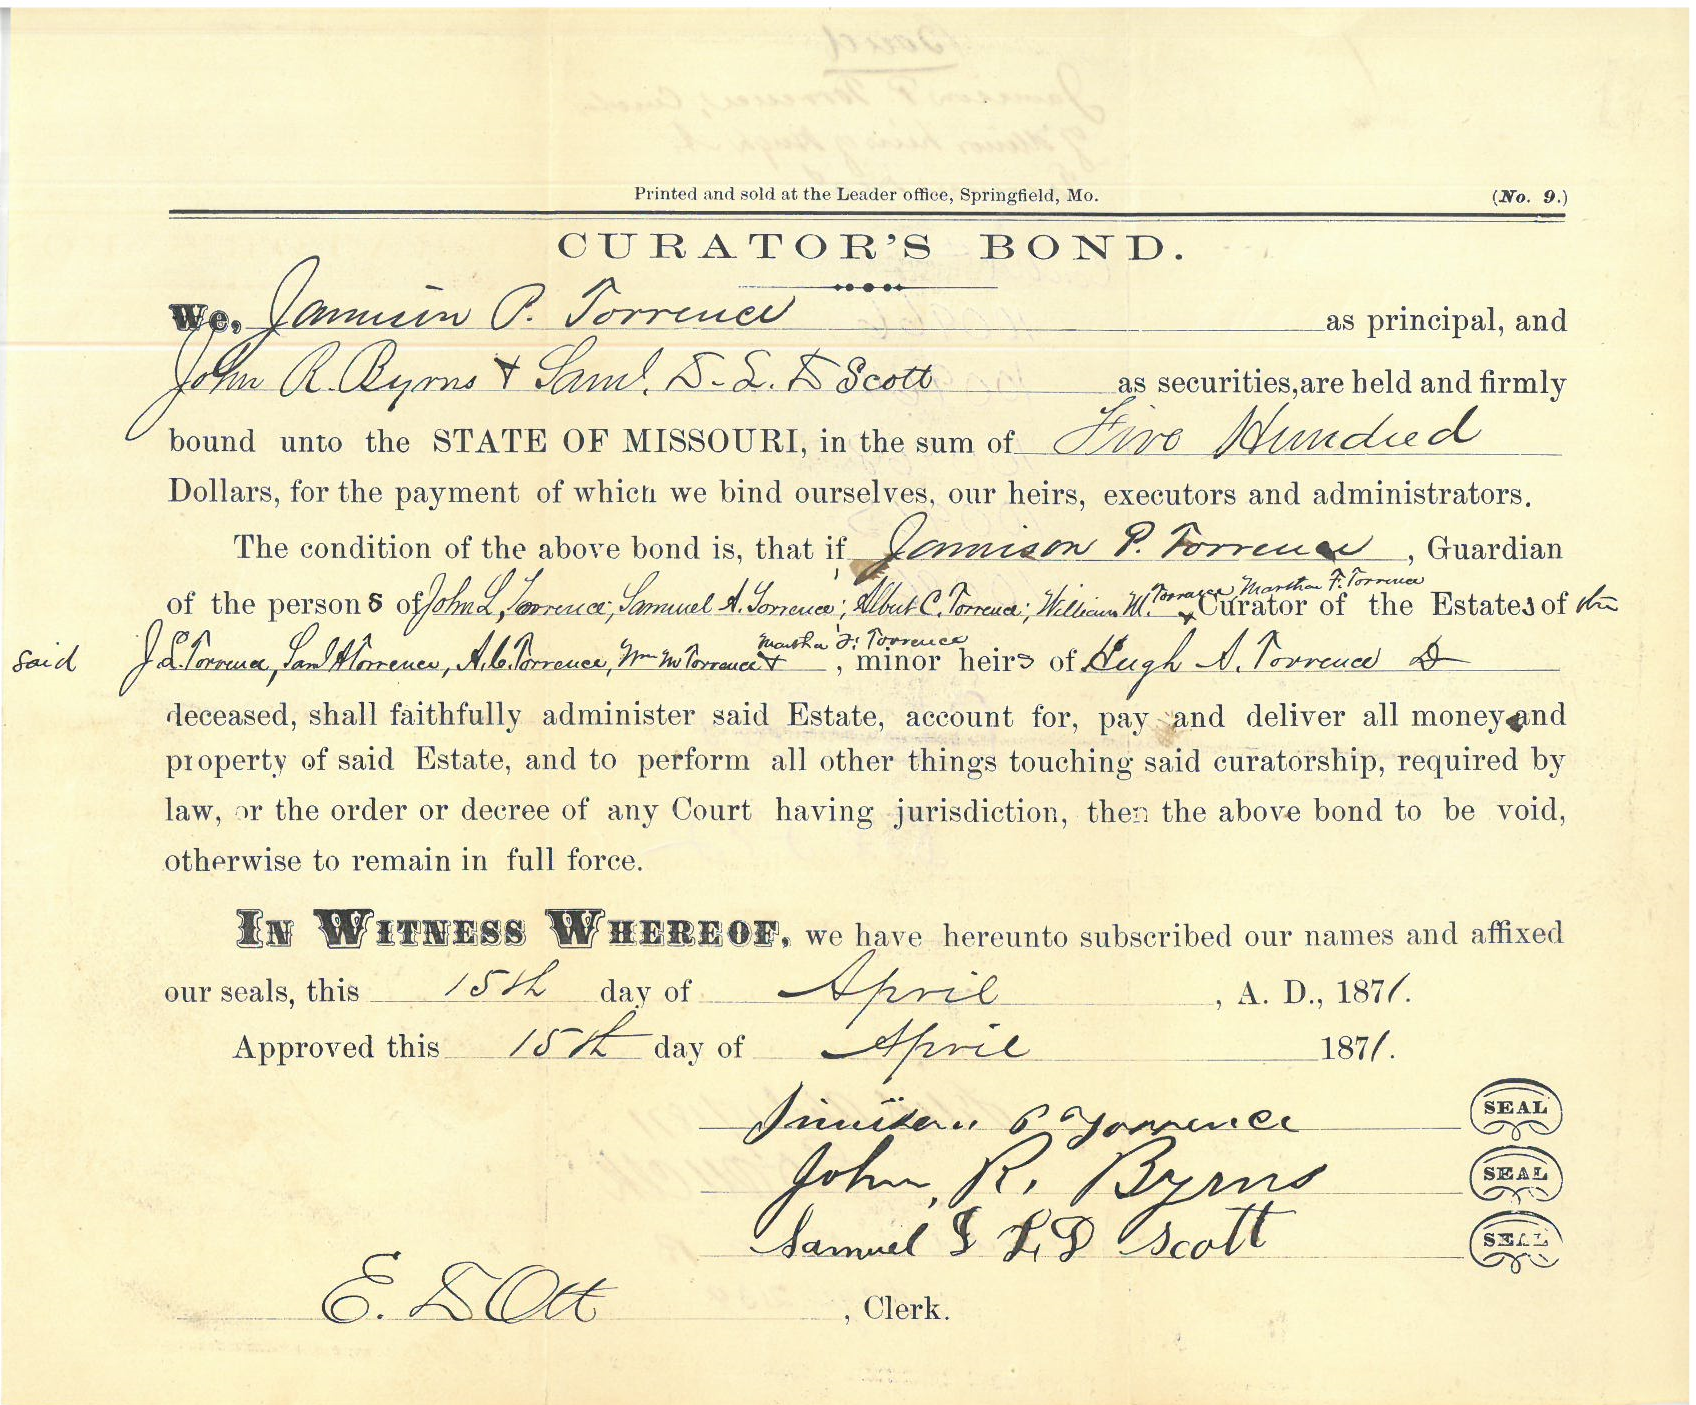 Printed and sold at the Leader office, Springfield, Mo. (No. 9.)
CURATOR'S BOND.
We, Jamison P. Torrence as principal, and
John R. Byrns & Saml. D. L. D Scott as securities, are held and firmly
bound unto the STATE OF MISSOURI, in the sum of Five Hundred
Dollars, for the payment of which we bind ourselves, our heirs, executors and administrators.
The condition of the above bond is, that if Jamison P. Torrence, Guardian
of the persons of John L. Torrence; Samuel A. Torrence; Albert C. Torrence; William M. Torrence, Martha F. Torrence & Curator of the Estates of the
said J L. Torrence, Saml A Torrence, A. C. Torrence, Wm M Torrence & Martha F. Torrence, minor heirs of Hugh A. Torrence D
deceased, shall faithfully administer said Estate, account for, pay and deliver all money and
property of said Estate, and to perform all other things touching said curatorship, required by
law, or the order or decree of any Court having jurisdiction, then the above bond to be void,
otherwise to remain in full force.
IN WITNESS WHEREOF, we have hereunto subscribed our names and affixed
our seals, this 15th day of April, A. D., 1871.
Approved this 15th day of April 1871.
P Torrence SEAL
John, R. Byrns SEAL
Samuel L D Scott SEAL
E. D Ott, Clerk.